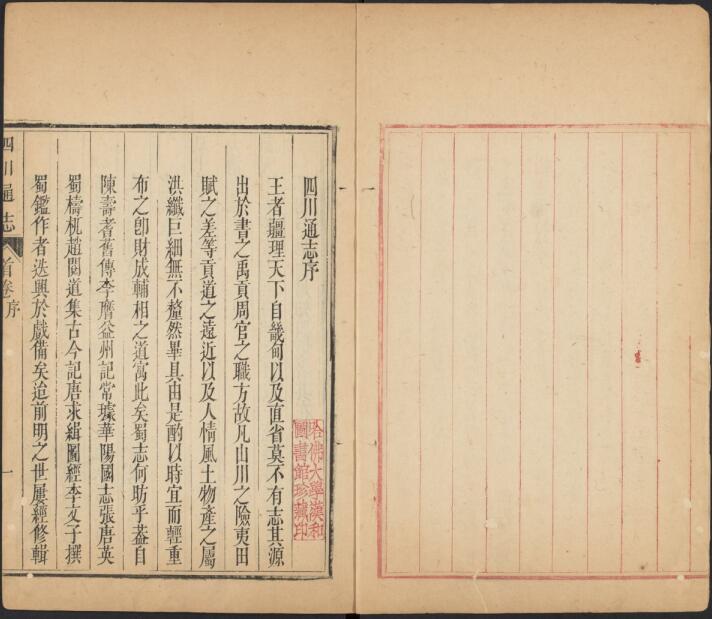 四川通志序
王者疆理天下自畿甸以及直省莫不有志其源
出於書之禹貢周官之職方故凡山川之險夷田
賦之差等貢道之遠近以及人情風土物產之屬
洪纖巨細無不釐然畢具由是酌以時宜而輕重
布之卽財成輔相之道寓此矣蜀志何昉乎葢自
陳壽耆舊傳李膺益州記常璩華陽國志張唐英
蜀檮杌趙閱道集古今記唐求緝圖經李文子撰
蜀鑑作者迭興於戲備矣迨前明之世屢經修輯
四川通志
首卷序
一
哈佛大學漢和
圖書館珍藏印